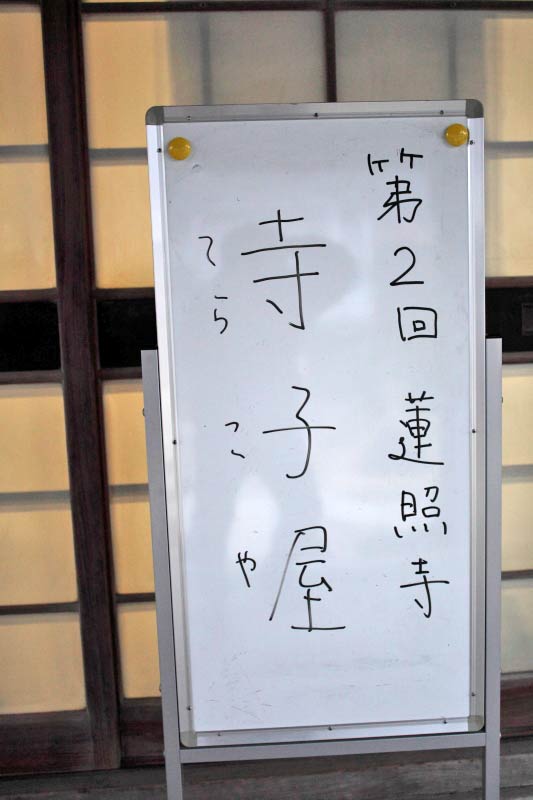 第2回 蓮照寺
寺子屋
てらこや